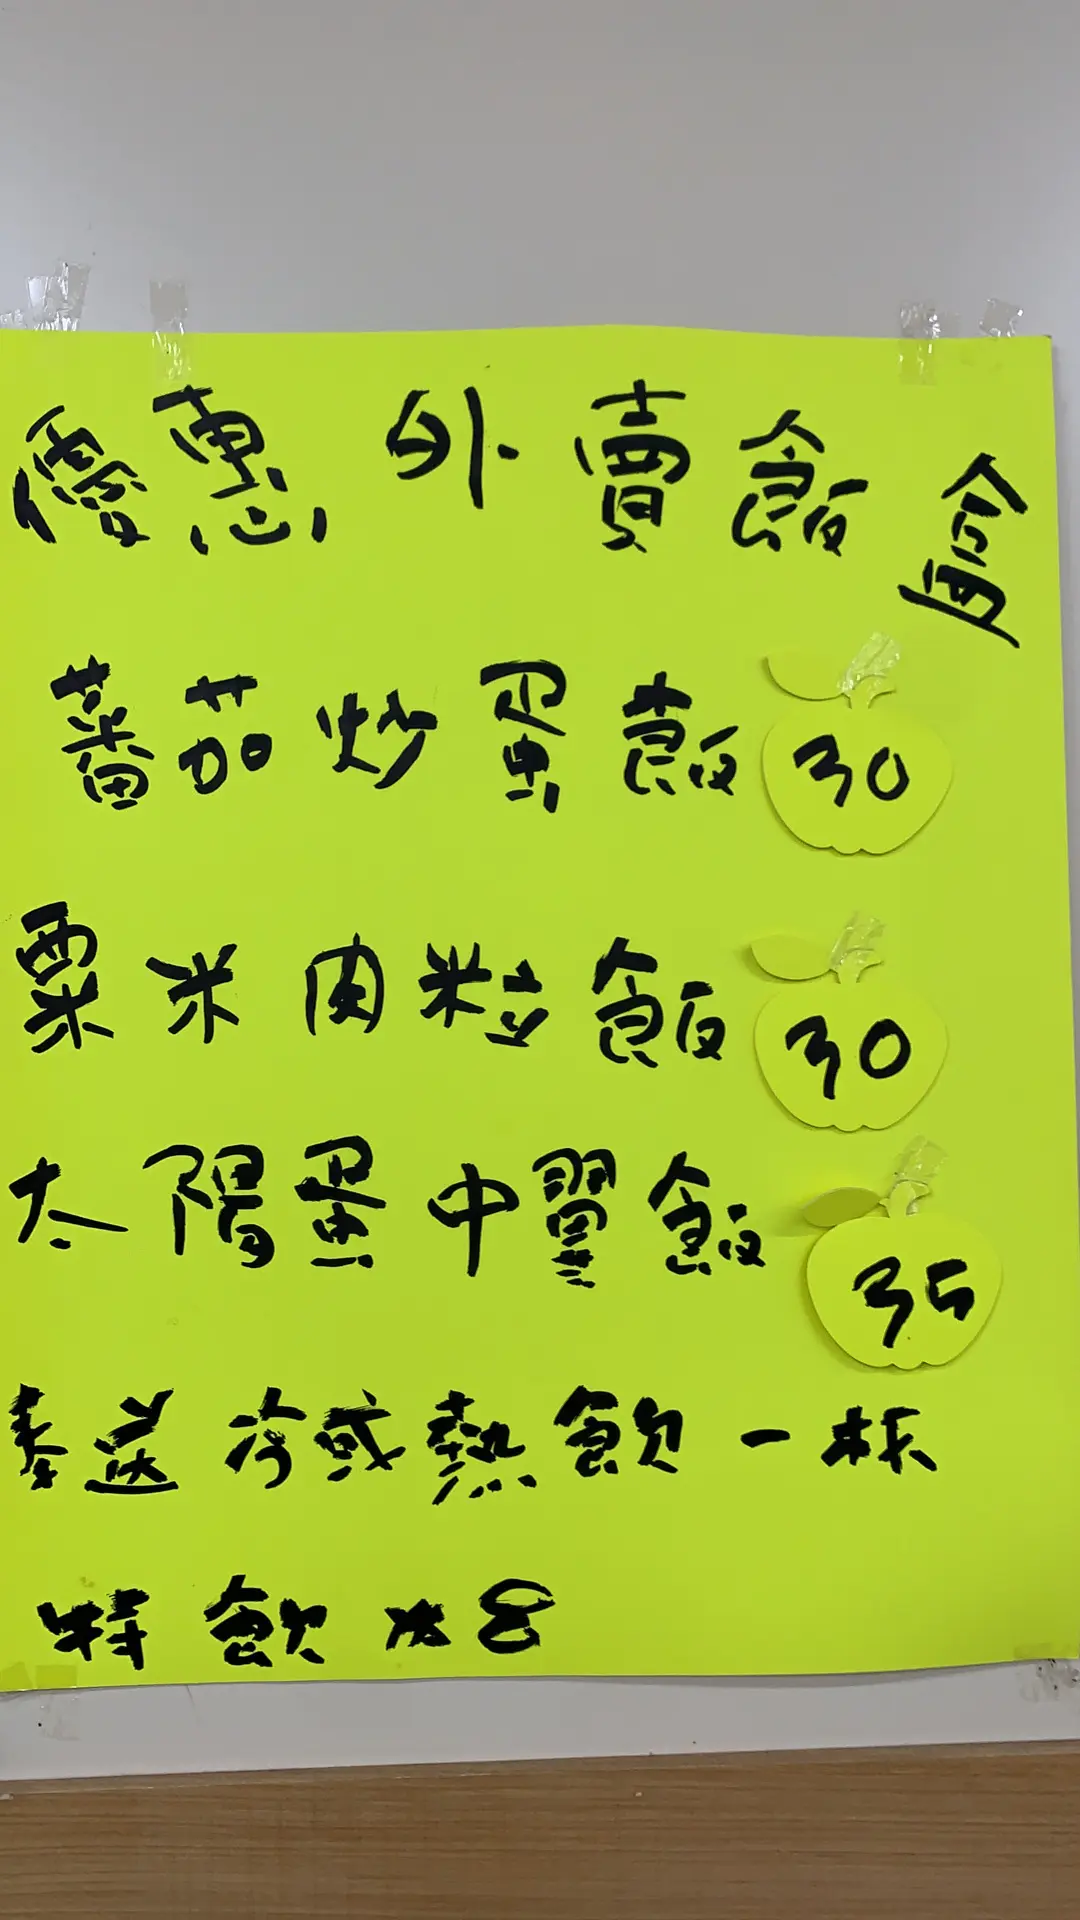 優惠外賣飯盒
蕃茄炒蛋飯 30
粟米肉粒飯 30
太陽蛋中翼飯 35
奉送冷或熱飲一杯
特飲加8